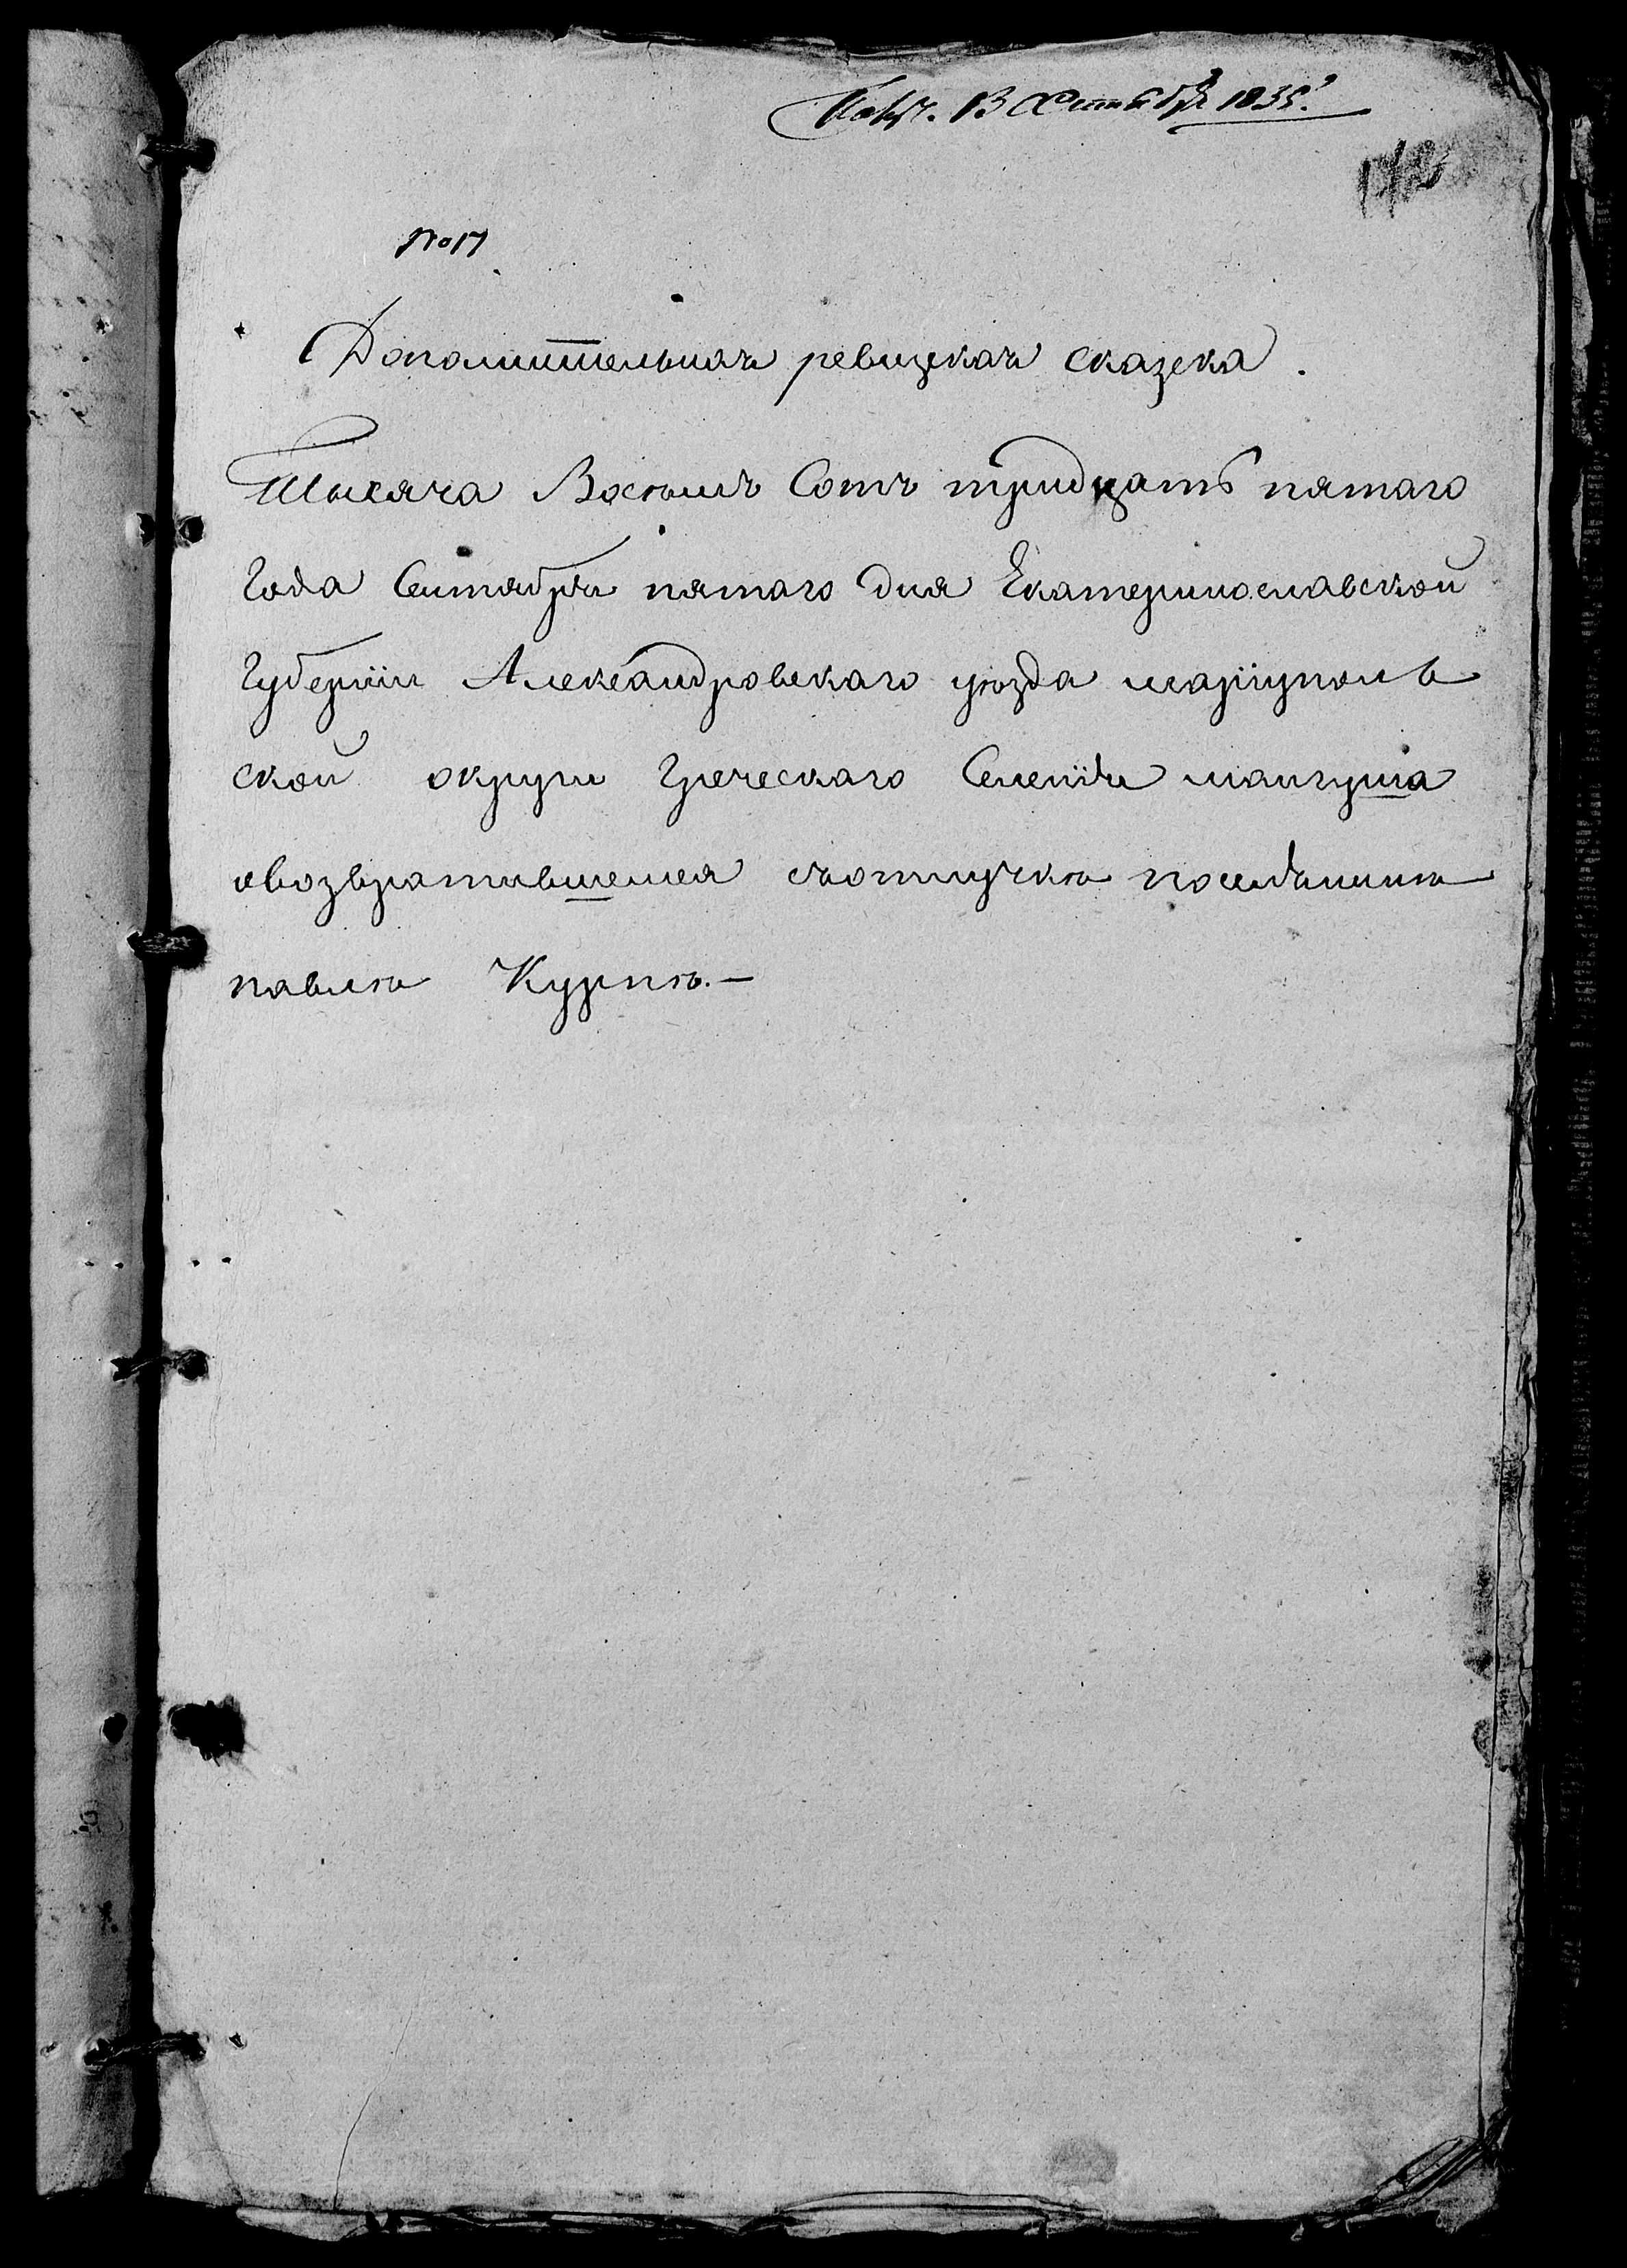 Пол. 13 Сентября 1835.
№ 17
Дополнительная ревизская сказска.
Тысяча Восемь Сотъ тридцать пятаго
Года Сентября пятаго дня Екатеринославской
Губерніи Александровскаго уѣзда маріуполь
ской округи Греческаго Селенія мангуша
овозвратившемся сютлучки поселянинѣ
павлѣ Куркчѣ.—